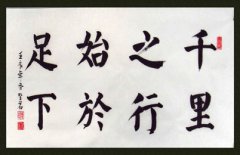 千里
之行
始於
足下